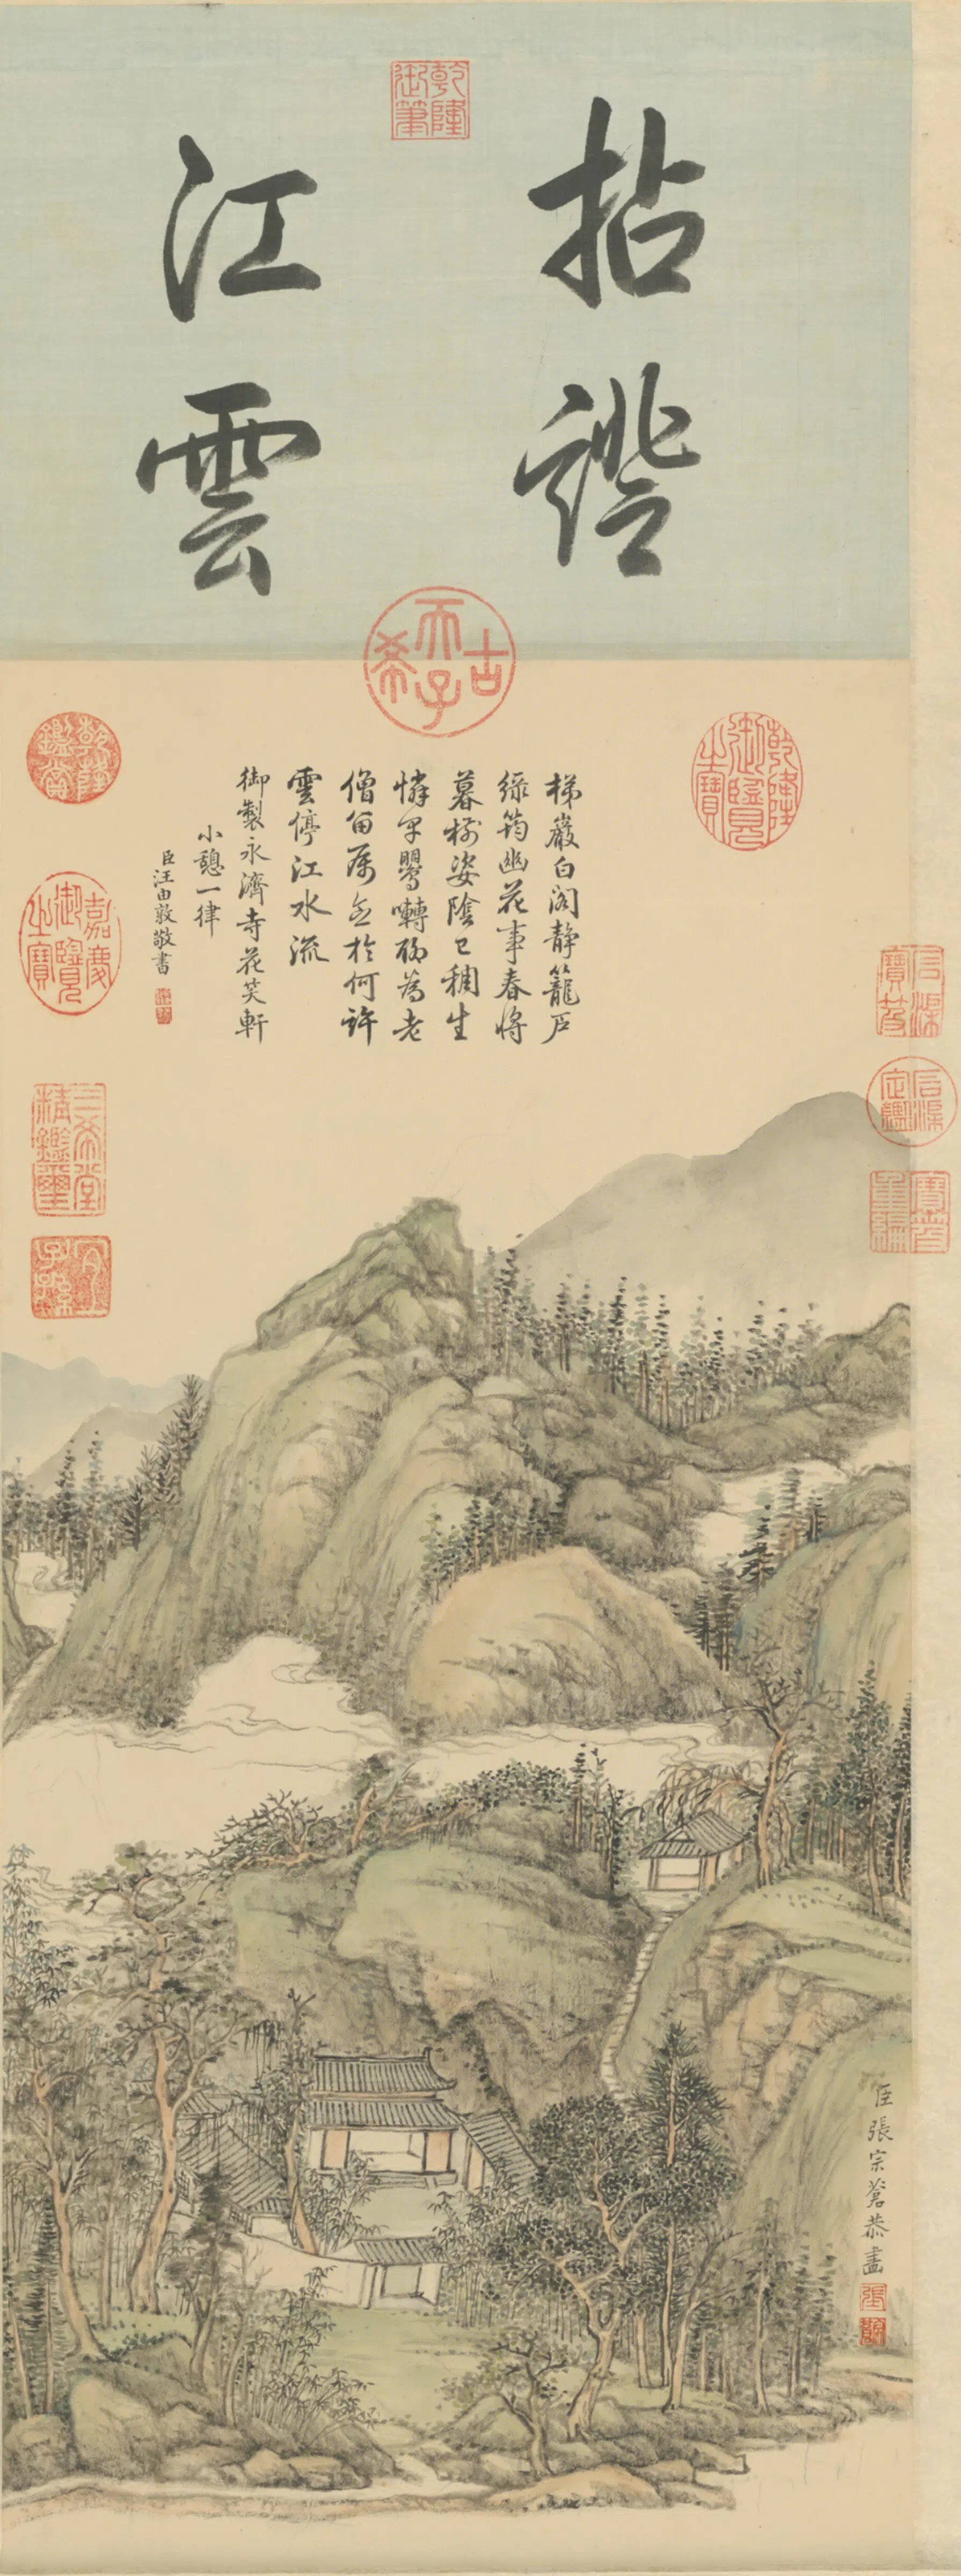 乾隆御筆
拈證
江雲
古希天子
乾隆御覽之寶
梯巖白閣靜籠戶
綠筠幽花事春將
暮樹姿陰已稠生
憐早鸎囀為老
僧留屬意於何許
雲停江水流
御製永濟寺花笑軒
小憩一律
臣汪由敦敬書
乾隆鑑賞
嘉慶御覽之寶
三希堂精鑑璽
宜子孫
石渠寶笈
石渠定鑑
寶笈重編
臣張宗蒼恭畫